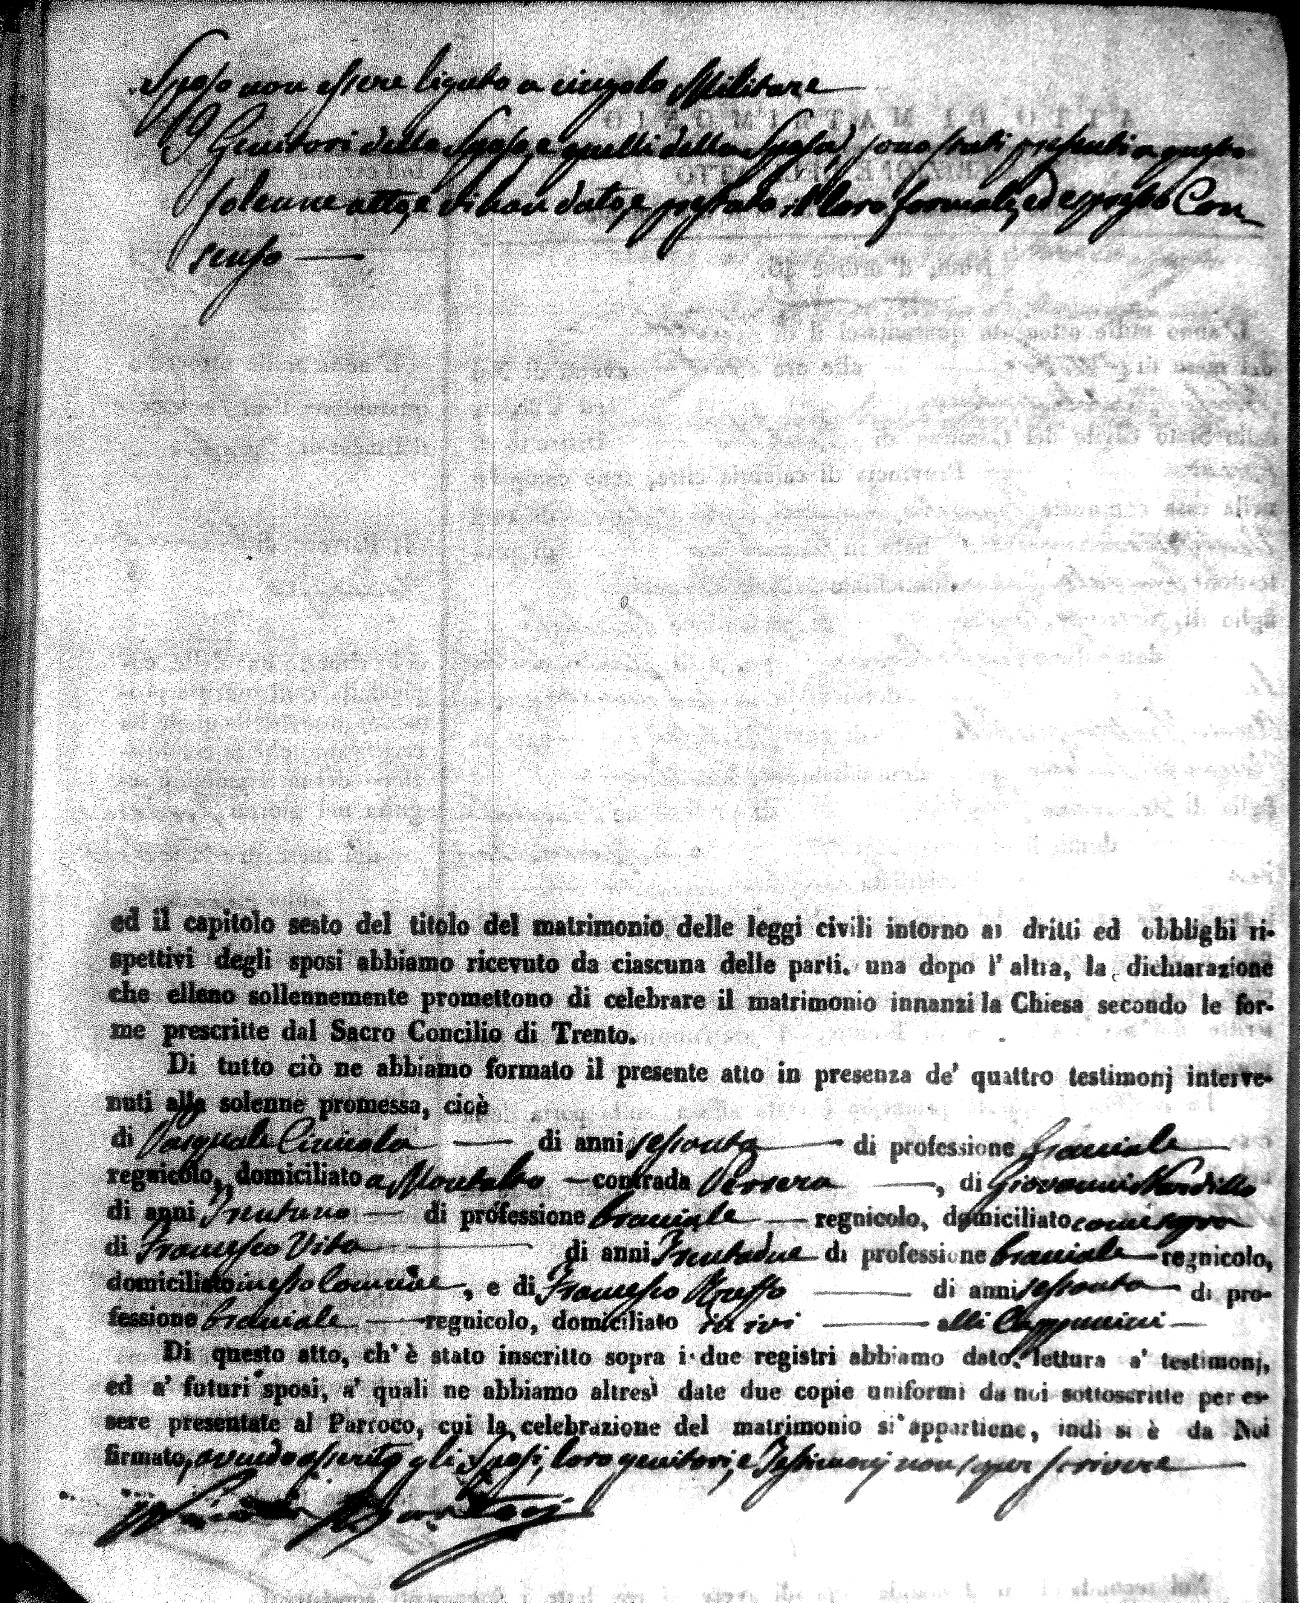 Sposo non essere ligato a cingolo Militare
I Genitori dello Sposo, e quelli della Sposa, sono stati presenti a questo
solenne atto, e vi han dato, e prestato il loro formale, ed espresso Con
senso
ed il capitolo sesto del titolo del matrimonio delle leggi civili intorno ai dritti ed obblighi ri-
spettivi degli sposi abbiamo ricevuto da ciascuna delle parti. una dopo l' altra, la dichiarazione
che elleno sollennemente promettono di celebrare il matrimonio innanzi la Chiesa secondo le for-
me prescritte dal Sacro Concilio di Trento.
Di tutto ciò ne abbiamo formato il presente atto in presenza de' quattro testimonj interve-
nuti alla solenne promessa, cioè
di Pasquale di anni sessanta di professione bracciale
regnicolo, domiciliato a Montalto contrada , di Giovanni Nardillo
di anni Trentuno di professione bracciale regnicolo, domiciliato come sopra
di Francesco Vita di anni Trentadue di professione bracciale regnicolo,
domiciliato in esso Comune, e di Francesco di anni sessanta di pro-
fessione bracciale regnicolo, domiciliato ivi alli Cappuccini
Di questo atto, ch' è stato inscritto sopra i due registri abbiamo dato lettura a' testimonj,
ed a' futuri sposi, a' quali ne abbiamo altresì date due copie uniformi da noi sottoscritte per es-
sere presentate al Parroco, cui la celebrazione del matrimonio si appartiene, indi si è da Noi
firmato, avendo asserito gli Sposi, loro genitori, e Testimonj non saper scrivere